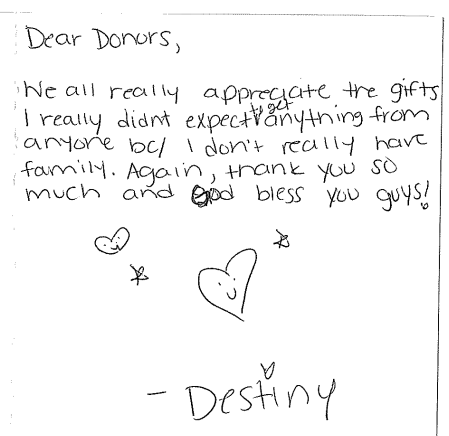 Dear Donors,
We all really appreciate the gifts
I really didnt expect to get anything from
anyone bc/ I don't really have
family. Again, thank you so
much and God bless you guys!
- Destiny